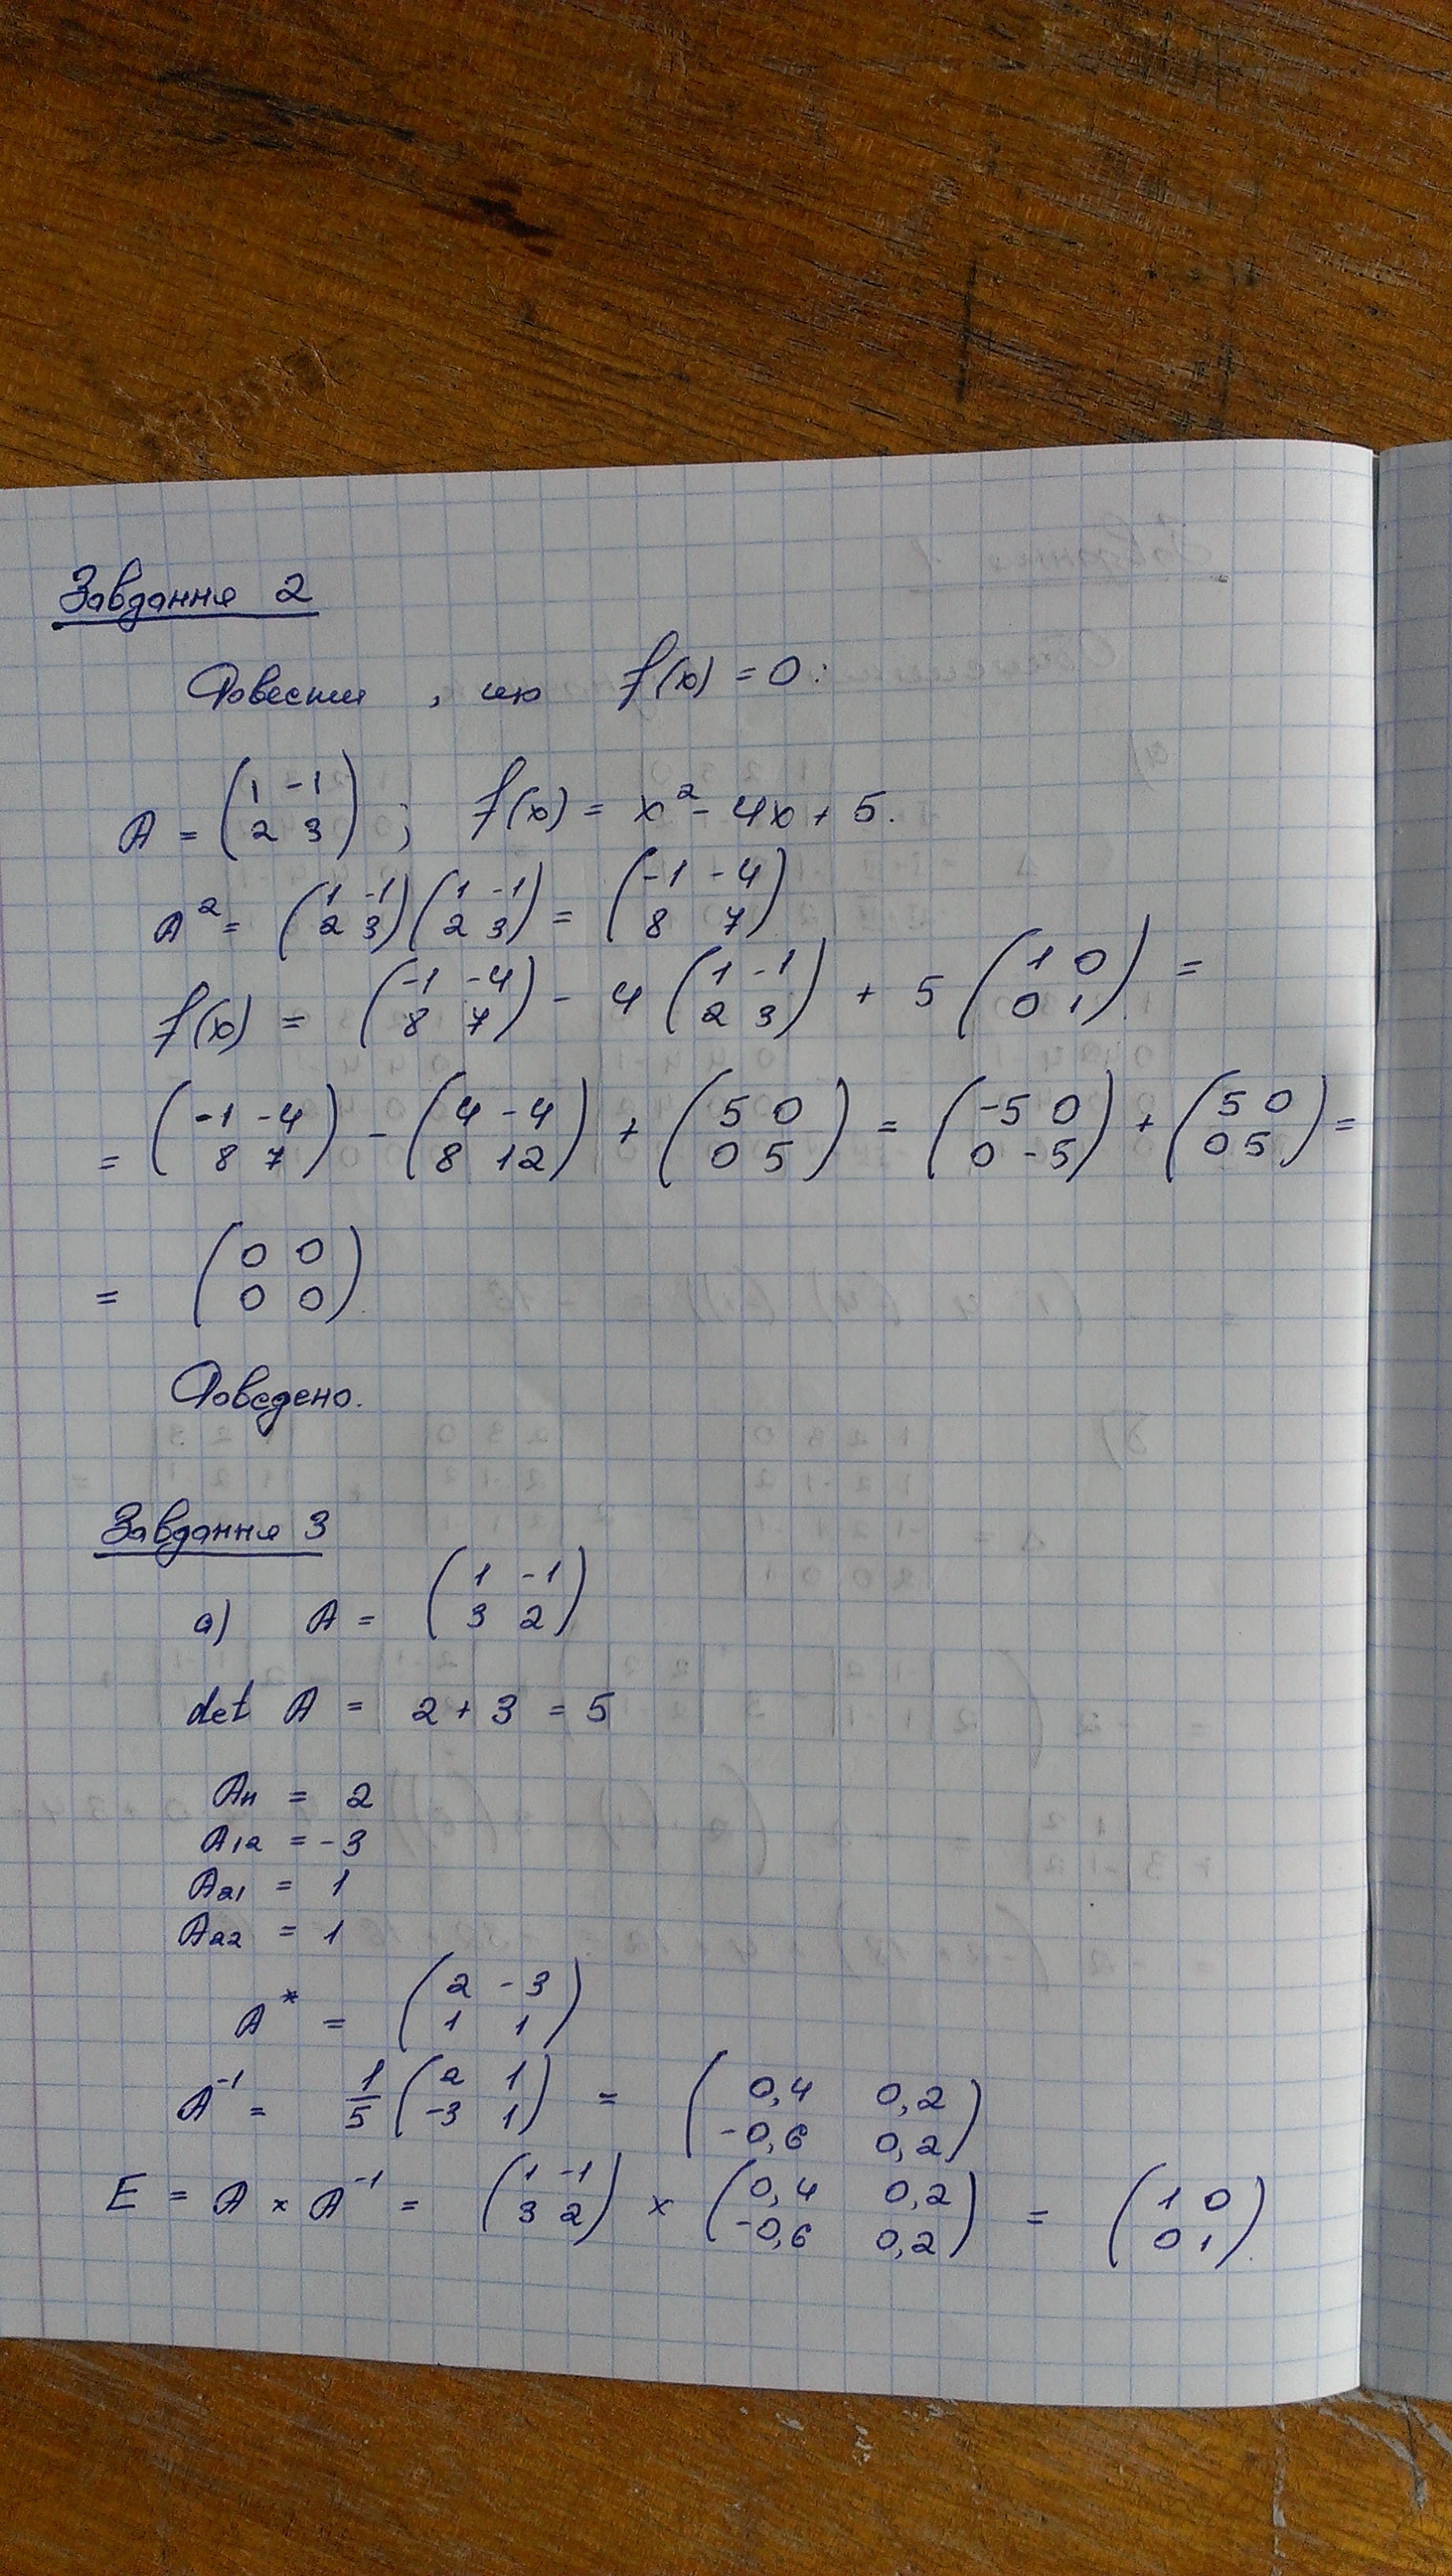 Завдання 2
Довести, що f(x) = 0:
A = (1 -1; 2 3); f(x) = x² - 4x + 5.
A² = (1 -1; 2 3)(1 -1; 2 3) = (-1 -4; 8 7)
f(x) = (-1 -4; 8 7) - 4 (1 -1; 2 3) + 5 (1 0; 0 1) =
= (-1 -4; 8 7) - (4 -4; 8 12) + (5 0; 0 5) = (-5 0; 0 -5) + (5 0; 0 5) =
= (0 0; 0 0).
Доведено.
Завдання 3
а) A = (1 -1; 3 2)
det A = 2 + 3 = 5
A₁₁ = 2
A₁₂ = -3
A₂₁ = 1
A₂₂ = 1
A* = (2 -3; 1 1)
A⁻¹ = 1/5 (2 1; -3 1) = (0,4 0,2; -0,6 0,2)
E = A × A⁻¹ = (1 -1; 3 2) × (0,4 0,2; -0,6 0,2) = (1 0; 0 1).